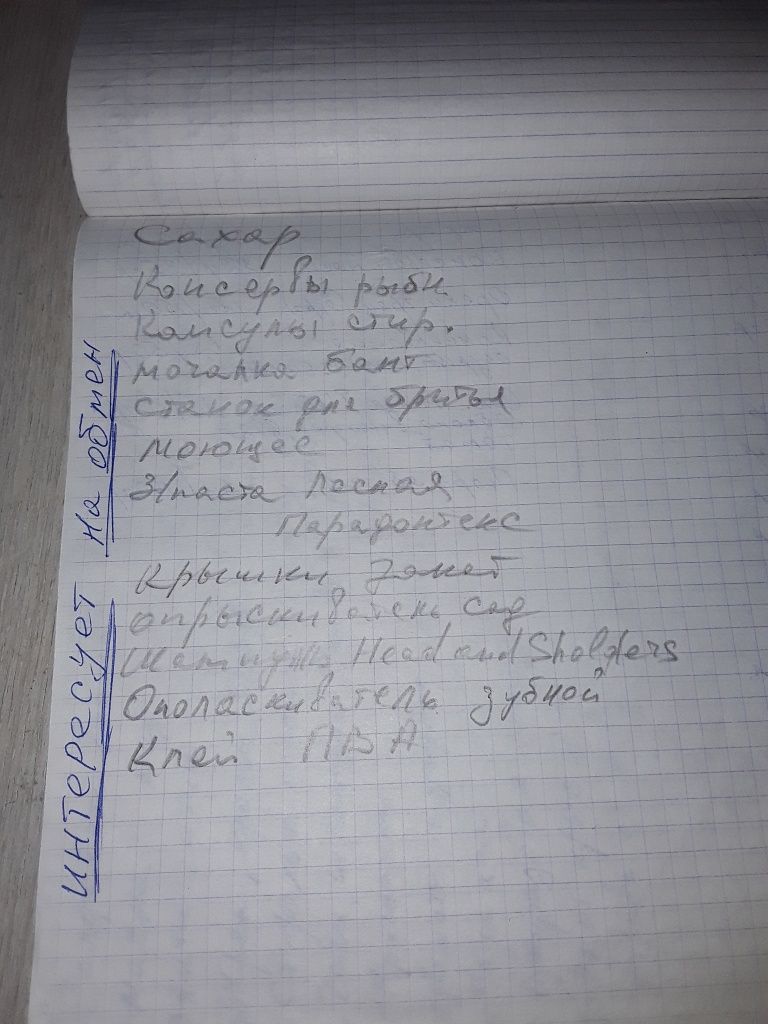 Интересует на обмен
Сахар
Консервы рыбн
Капсулы стир.
мочалка бант
станок для бритья
моющее
З/паста Лесная
Парадонтекс
Крышки закат
опрыскиватель сад
Шампунь Head and Sholders
Ополаскиватель зубной
Клей ПВА